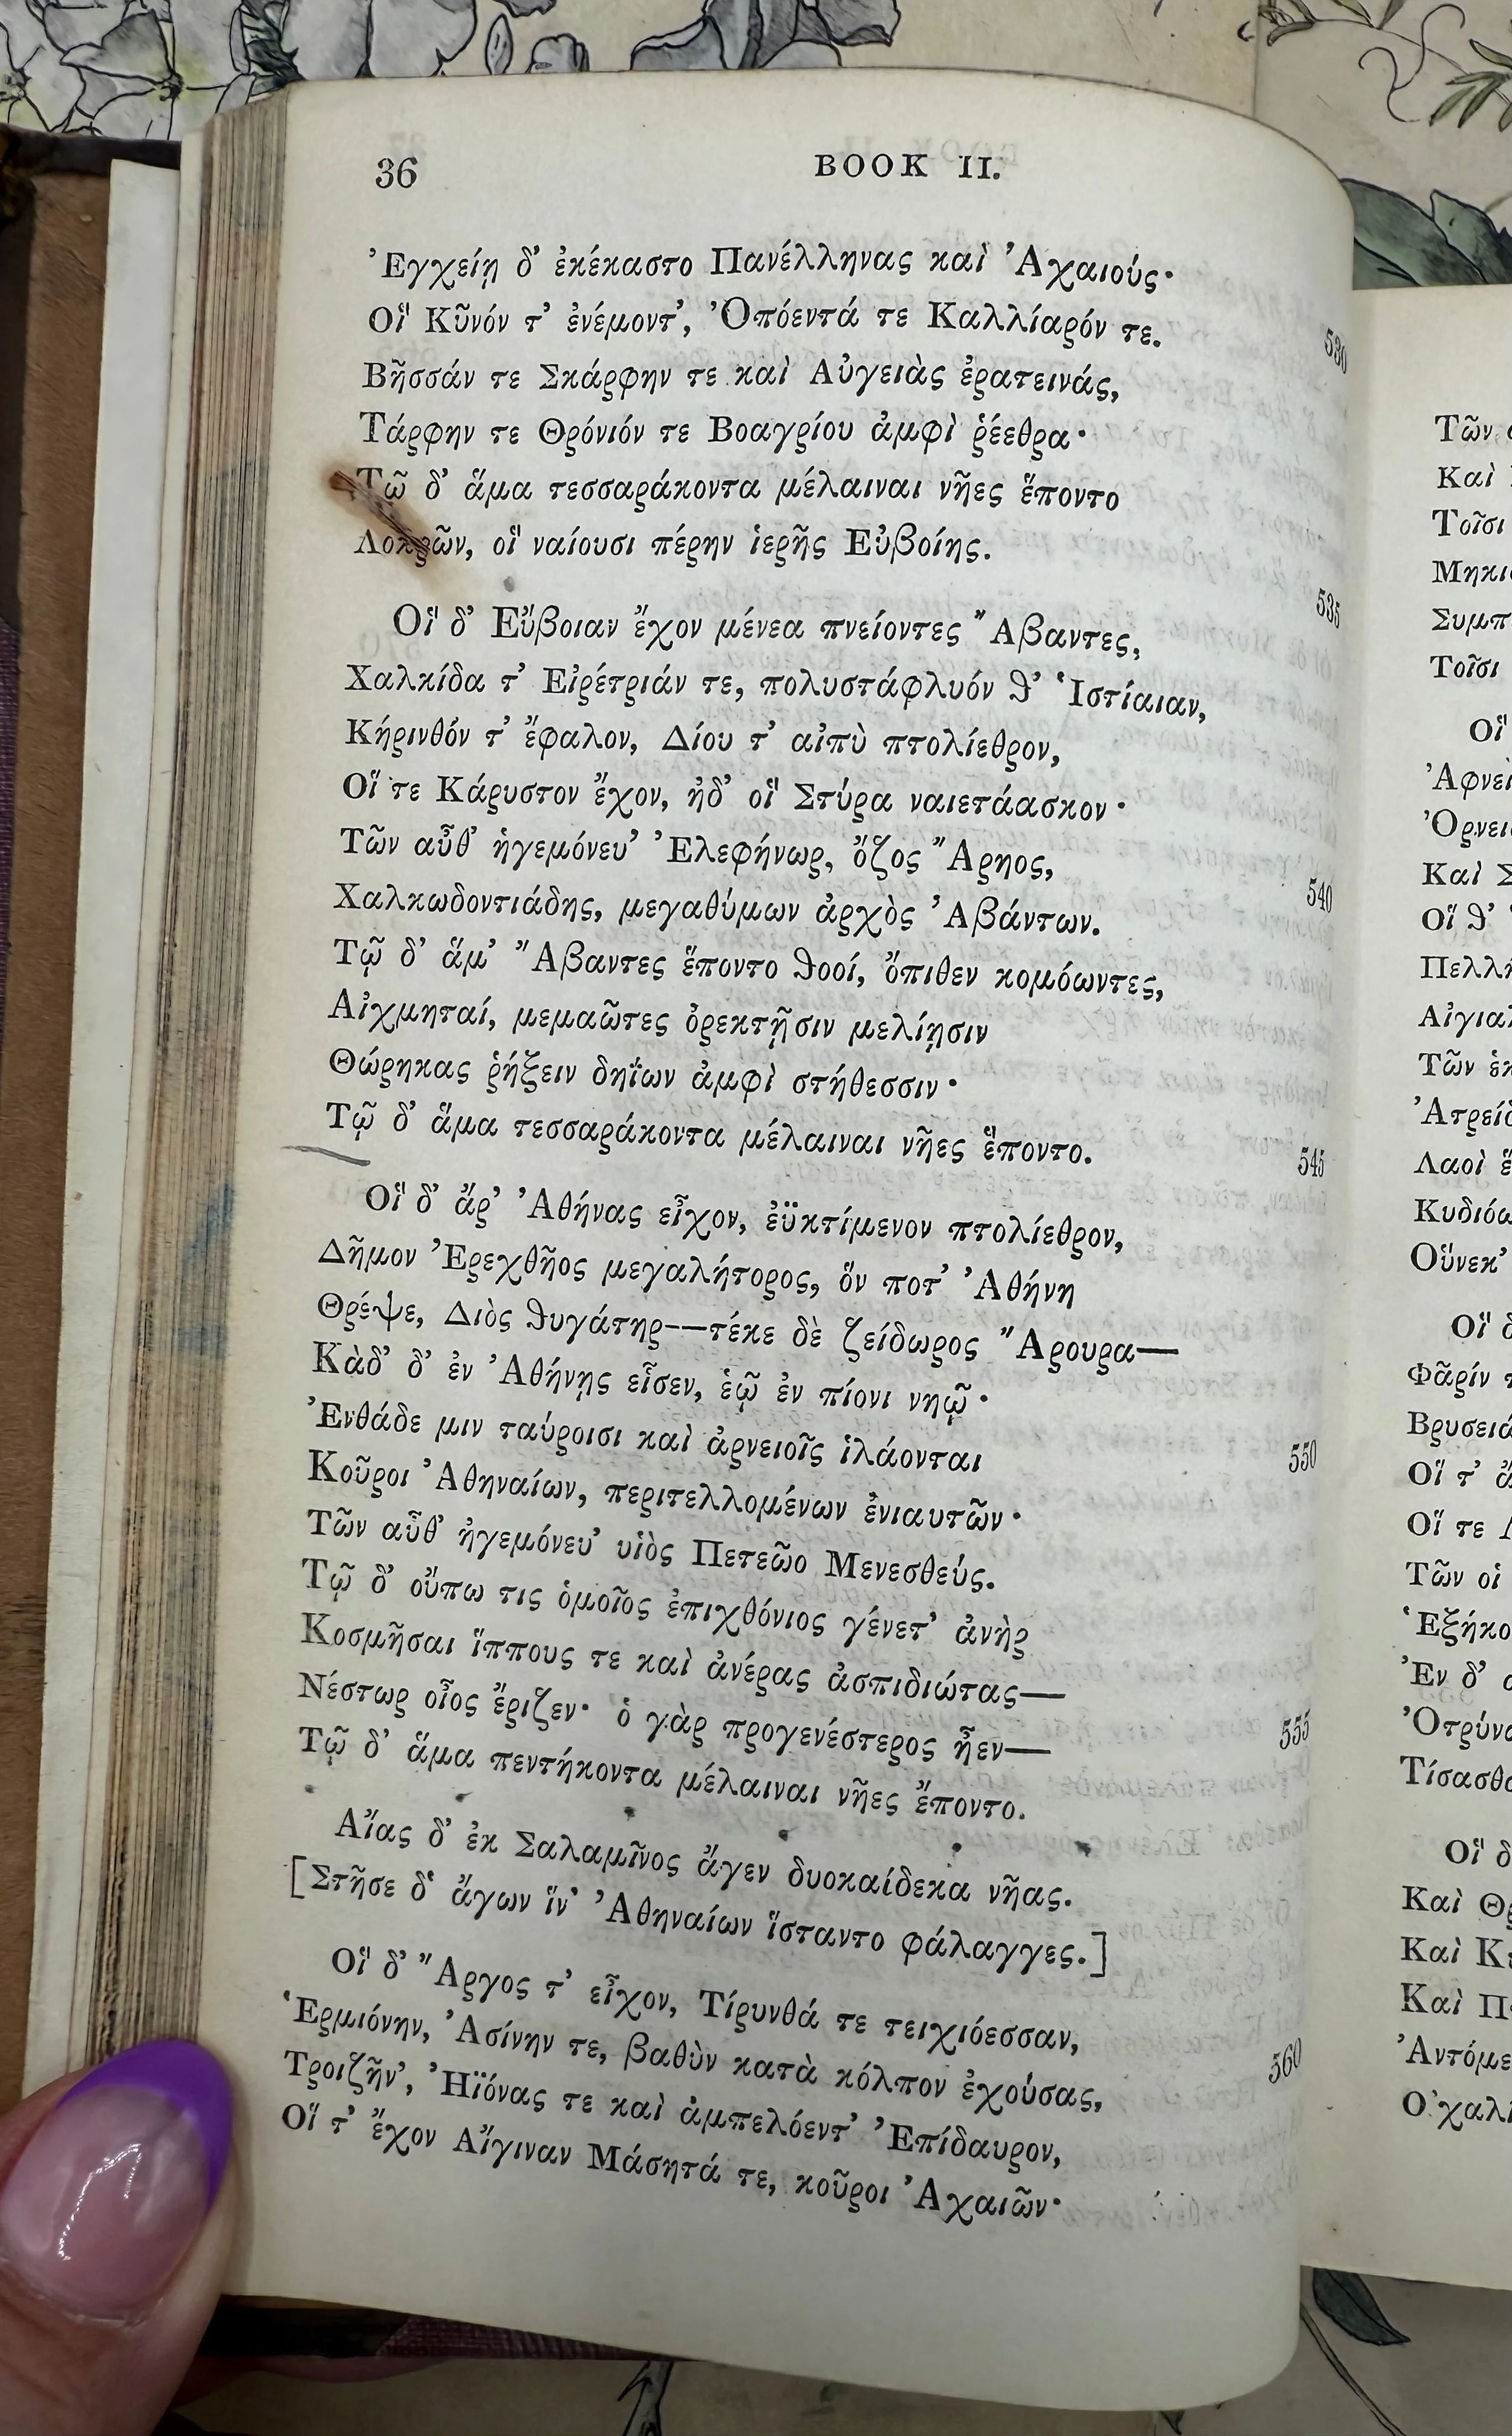 36 BOOK II.
Ἐγχείῃ δ’ ἐκέκαστο Πανέλληνας καὶ Ἀχαιούς·
Οἳ Κῦνόν τ’ ἐνέμοντ’, Ὀπόεντά τε Καλλίαρόν τε.
Βῆσσάν τε Σκάρφην τε καὶ Αὐγειὰς ἐρατεινάς,
Τάρφην τε Θρόνιόν τε Βοαγρίου ἀμφὶ ῥέεθρα·
Τῷ δ’ ἅμα τεσσαράκοντα μέλαιναι νῆες ἕποντο
Λοκρῶν, οἳ ναίουσι πέρην ἱερῆς Εὐβοίης. 535
Οἳ δ’ Εὔβοιαν ἔχον μένεα πνείοντες Ἄβαντες,
Χαλκίδα τ’ Εἰρέτριάν τε, πολυστάφυλόν θ’ Ἱστίαιαν,
Κήρινθόν τ’ ἔφαλον, Δίου τ’ αἰπὺ πτολίεθρον,
Οἵ τε Κάρυστον ἔχον, ἠδ’ οἳ Στύρα ναιετάασκον·
Τῶν αὖθ’ ἡγεμόνευ’ Ἐλεφήνωρ, ὄζος Ἄρηος, 540
Χαλκωδοντιάδης, μεγαθύμων ἀρχὸς Ἀβάντων.
Τῷ δ’ ἅμ’ Ἄβαντες ἕποντο θοοί, ὄπιθεν κομόωντες,
Αἰχμηταί, μεμαῶτες ὀρεκτῇσιν μελίῃσιν
Θώρηκας ῥήξειν δηΐων ἀμφὶ στήθεσσιν·
Τῷ δ’ ἅμα τεσσαράκοντα μέλαιναι νῆες ἕποντο. 545
Οἳ δ’ ἄρ’ Ἀθήνας εἶχον, ἐϋκτίμενον πτολίεθρον,
Δῆμον Ἐρεχθῆος μεγαλήτορος, ὅν ποτ’ Ἀθήνη
Θρέψε, Διὸς θυγάτηρ—τέκε δὲ ζείδωρος Ἄρουρα—
Κὰδ’ δ’ ἐν Ἀθήνῃς εἷσεν, ἑῷ ἐν πίονι νηῷ·
Ἐνθάδε μιν ταύροισι καὶ ἀρνειοῖς ἱλάονται 550
Κοῦροι Ἀθηναίων, περιτελλομένων ἐνιαυτῶν·
Τῶν αὖθ’ ἡγεμόνευ’ υἱὸς Πετεῶο Μενεσθεύς.
Τῷ δ’ οὔπω τις ὁμοῖος ἐπιχθόνιος γένετ’ ἀνὴρ
Κοσμῆσαι ἵππους τε καὶ ἀνέρας ἀσπιδιώτας—
Νέστωρ οἶος ἔριζεν· ὁ γὰρ προγενέστερος ἦεν— 555
Τῷ δ’ ἅμα πεντήκοντα μέλαιναι νῆες ἕποντο.
Αἴας δ’ ἐκ Σαλαμῖνος ἄγεν δυοκαίδεκα νῆας.
[Στῆσε δ’ ἄγων ἵν’ Ἀθηναίων ἵσταντο φάλαγγες.]
Οἳ δ’ Ἄργος τ’ εἶχον, Τίρυνθά τε τειχιόεσσαν,
Ἑρμιόνην, Ἀσίνην τε, βαθὺν κατὰ κόλπον ἐχούσας, 560
Τροιζῆν’, Ἠϊόνας τε καὶ ἀμπελόεντ’ Ἐπίδαυρον,
Οἵ τ’ ἔχον Αἴγιναν Μάσητά τε, κοῦροι Ἀχαιῶν·
Τῶν
Καὶ
Τοῖσι
Τοῖσι
Οἳ
Καὶ
Οἵ θ’
Τῶν
Λαοὶ
Οὕνεκ’
Οἳ
Οἵ τ’
Οἵ τε
Τῶν οἱ
Ἐν δ’
Οἳ
Καὶ
Καὶ
Καὶ